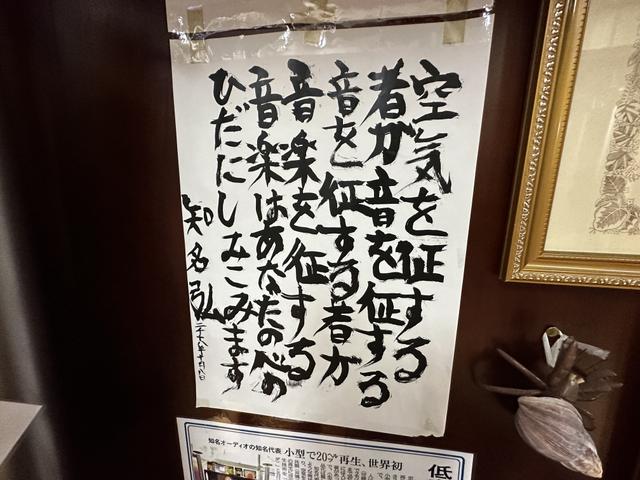 空気を征する
者が音を征する
音を征する者が
音楽を征する
音楽はあなたの心の
ひだにしみこみます
知名弘
知名オーディオの知名代表
小型で20㌔再生、世界初
低